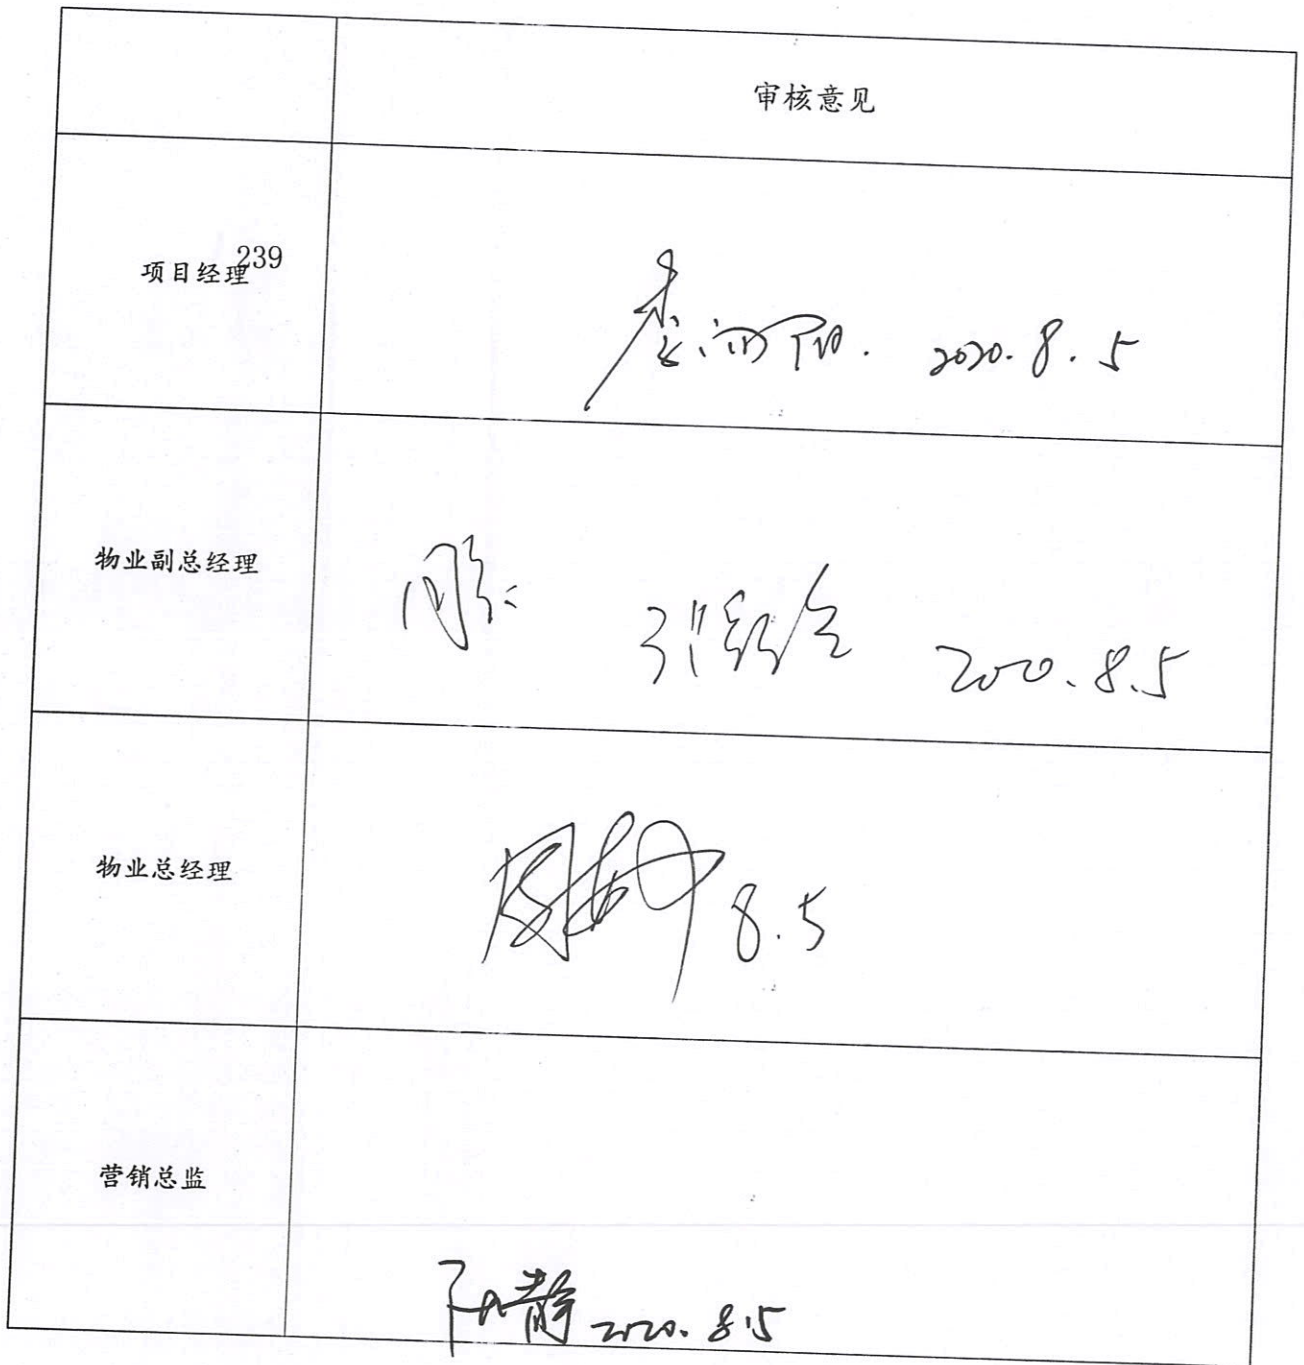 审核意见
项目经理
239
2020.8.5
物业副总经理
2020.8.5
物业总经理
8.5
营销总监
2020.8.5